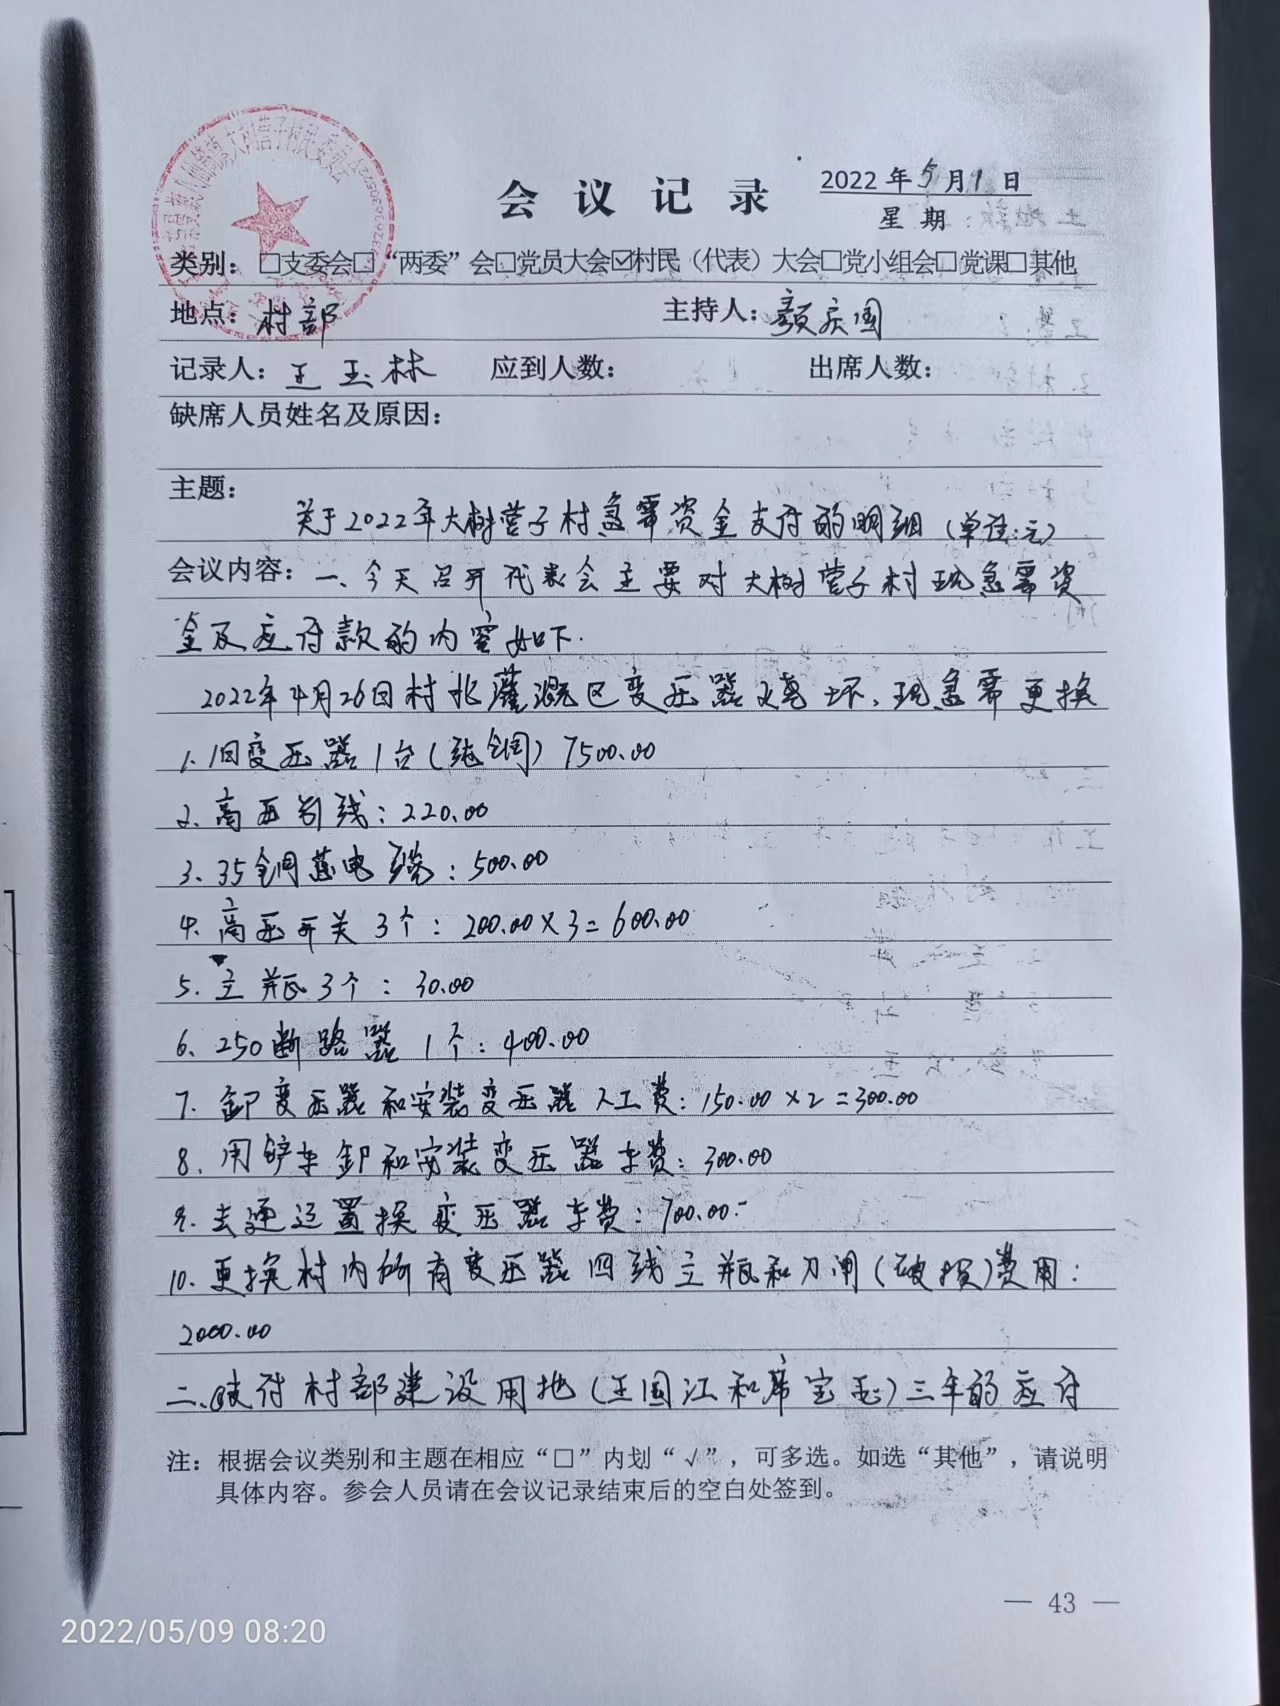 会议记录
2022年5月1日
星期:
类别: □支委会□“两委”会□党员大会☑村民(代表)大会□党小组会□党课□其他
地点: 村部 主持人: 颜庆国
记录人: 王玉林 应到人数: 出席人数:
缺席人员姓名及原因:
主题:
关于2022年大树营子村急需资金支付的明细(单位:元)
会议内容: 一、今天召开代表会主要对大树营子村现急需资
金及应付款的内容如下.
2022年4月26日村北灌溉区变压器烧坏、现急需更换
1. 旧变压器1台(纯铜) 7500.00
2. 高压引线: 220.00
3. 35铜芯电缆: 500.00
4. 高压开关3个: 200.00×3=600.00
5. 立瓶3个: 30.00
6. 250断路器1个: 400.00
7. 卸变压器和安装变压器人工费: 150.00×2=300.00
8. 用铲车卸和安装变压器车费: 300.00
9. 去通辽置换变压器车费: 700.00.
10. 更换村内所有变压器四线立瓶和刀闸(破损)费用:
2000.00
二、支付村部建设用地(王国江和席宝玉)三年的应付
注: 根据会议类别和主题在相应“□”内划“√”,可多选。如选“其他”,请说明
具体内容。参会人员请在会议记录结束后的空白处签到。
— 43 —
2022/05/09 08:20